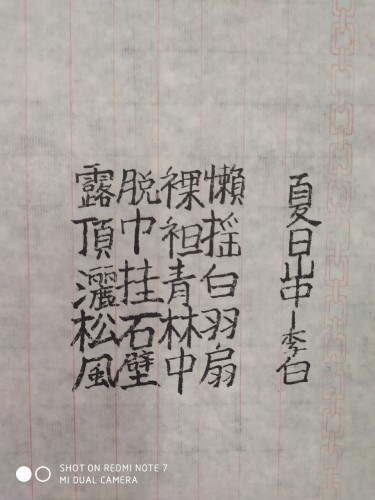 夏日山中-李白
懶摇白羽扇
裸袒青林中
脱巾挂石壁
露頂灑松風
SHOT ON REDMI NOTE 7
MI DUAL CAMERA